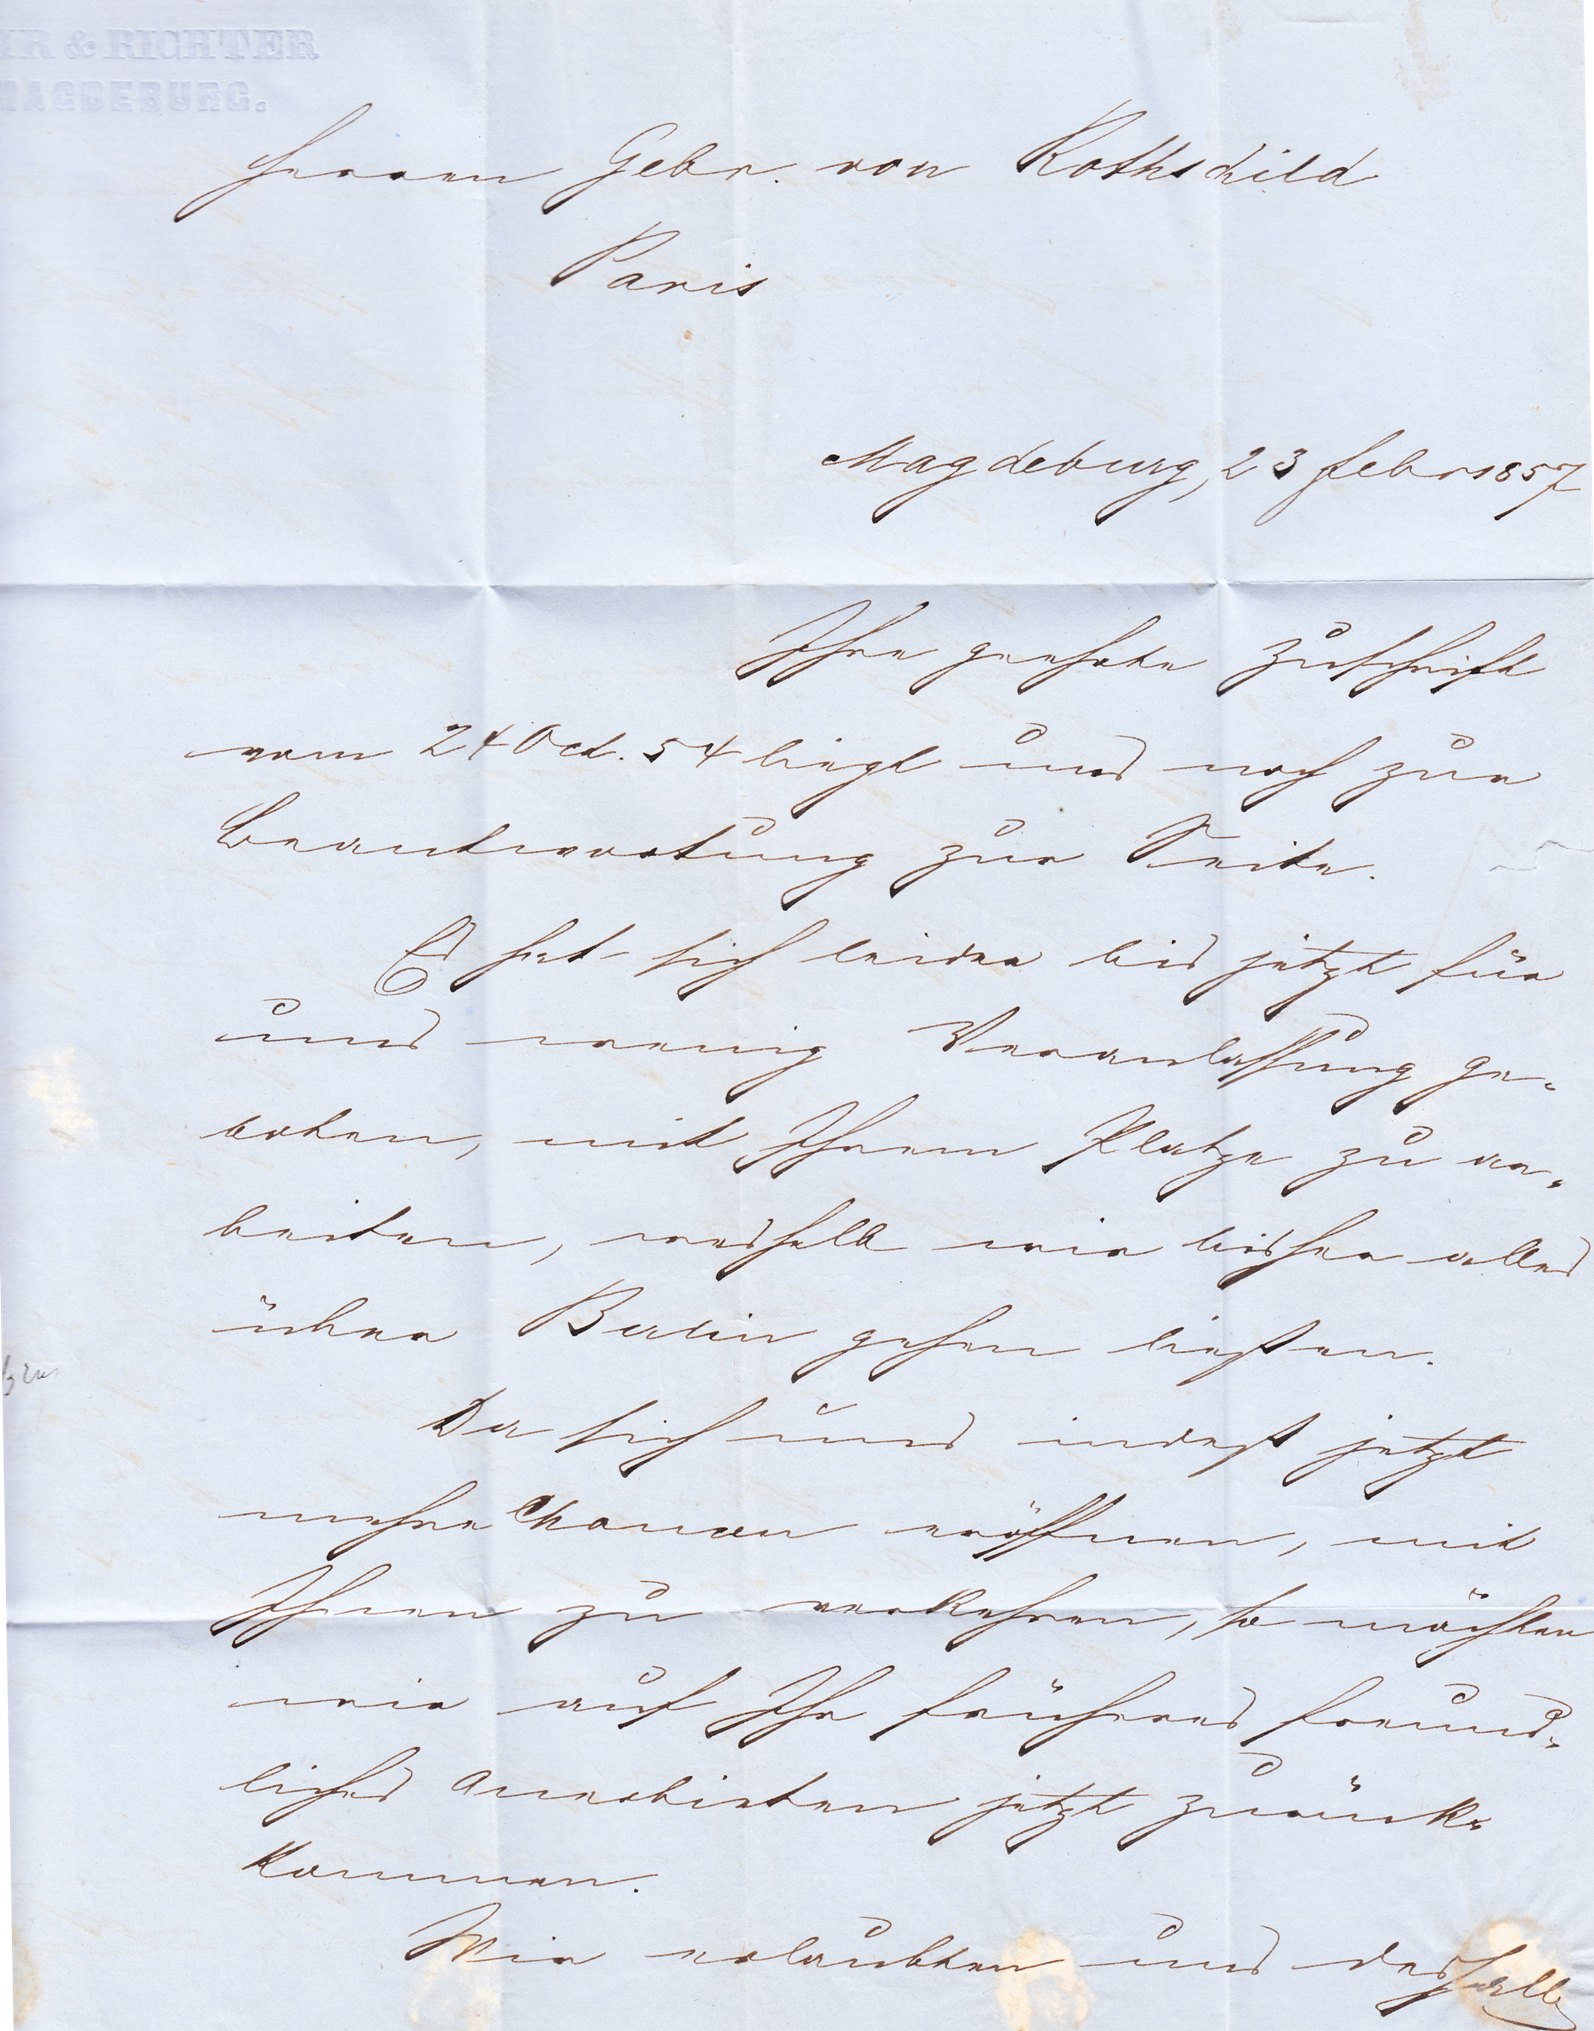 IR & RICHTER
MAGDEBURG.
Herren Gebr. von Rothschild
Paris
Magdeburg, 23 Febr 1857
Ihre geehrte Zuschrift
vom 24 Oct. 54 liegt uns noch zur
Beantwortung zur Seite.
Es hat sich leider bis jetzt für
uns wenig Veranlassung ge-
boten, mit Ihrem Platze zu ar-
beiten, weshalb wir bisher alles
über Berlin gehen ließen.
Da sich uns indeß jetzt
mehre Chancen eröffnen, mit
Ihnen zu verkehren, so möchten
wir auf Ihr früheres freund-
liches Anerbieten jetzt zurück-
kommen.
Wir erlaubten uns deshalb